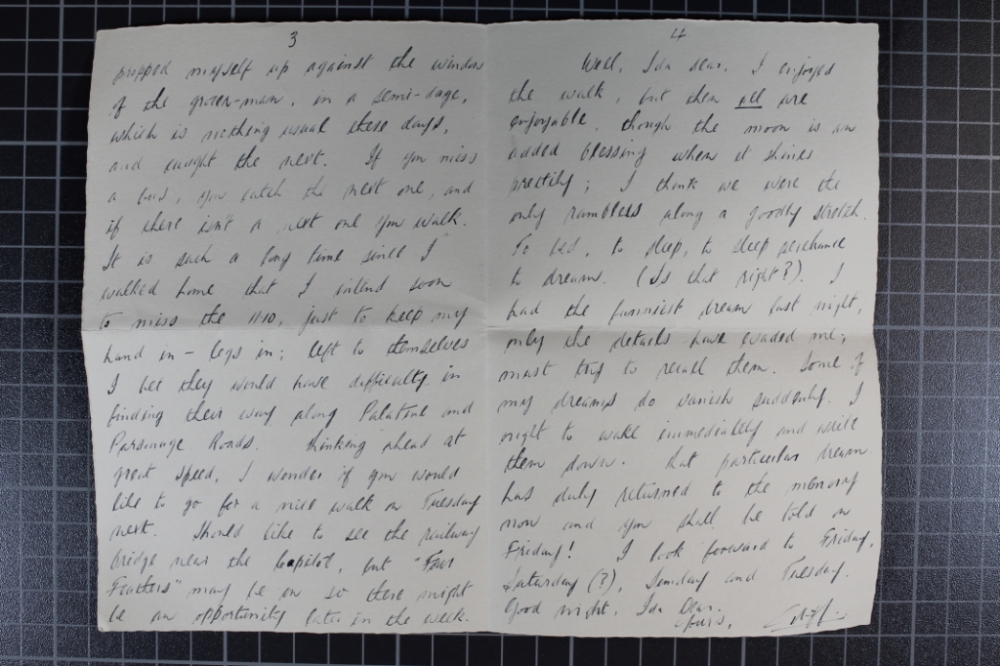 3
propped myself up against the window
of the grocer-man, in a semi-daze,
which is nothing usual these days,
and caught the next. If you miss
a bus, you catch the next one, and
if there isn't a next one you walk.
It is such a long time since I
walked home that I intend soon
to miss the 11.10, just to keep my
hand in - legs in; left to themselves
I bet they would have difficulty in
finding their way along Palatine and
Parsonage Roads. Thinking ahead at
great speed, I wonder if you would
like to go for a nice walk on Tuesday
next. Should like to see the railway
bridge near the Capitol, but "Four
Feathers" may be on so there might
be an opportunity later in the week.
4
Well, Ida dear, I enjoyed
the walk, but then all are
enjoyable, though the moon is an
added blessing when it shines
prettily; I think we were the
only ramblers along a goodly stretch.
To bed, to sleep, to sleep perchance
to dream. (Is that right?). I
had the funniest dream last night,
only the details have evaded me;
must try to recall them. Some of
my dreams do vanish suddenly. I
ought to wake immediately and write
them down. That particular dream
has duly returned to the memory
now and you shall be told on
Friday! I look forward to Friday,
Saturday (?), Sunday and Tuesday.
Good night, Ida Dear.
Yours,